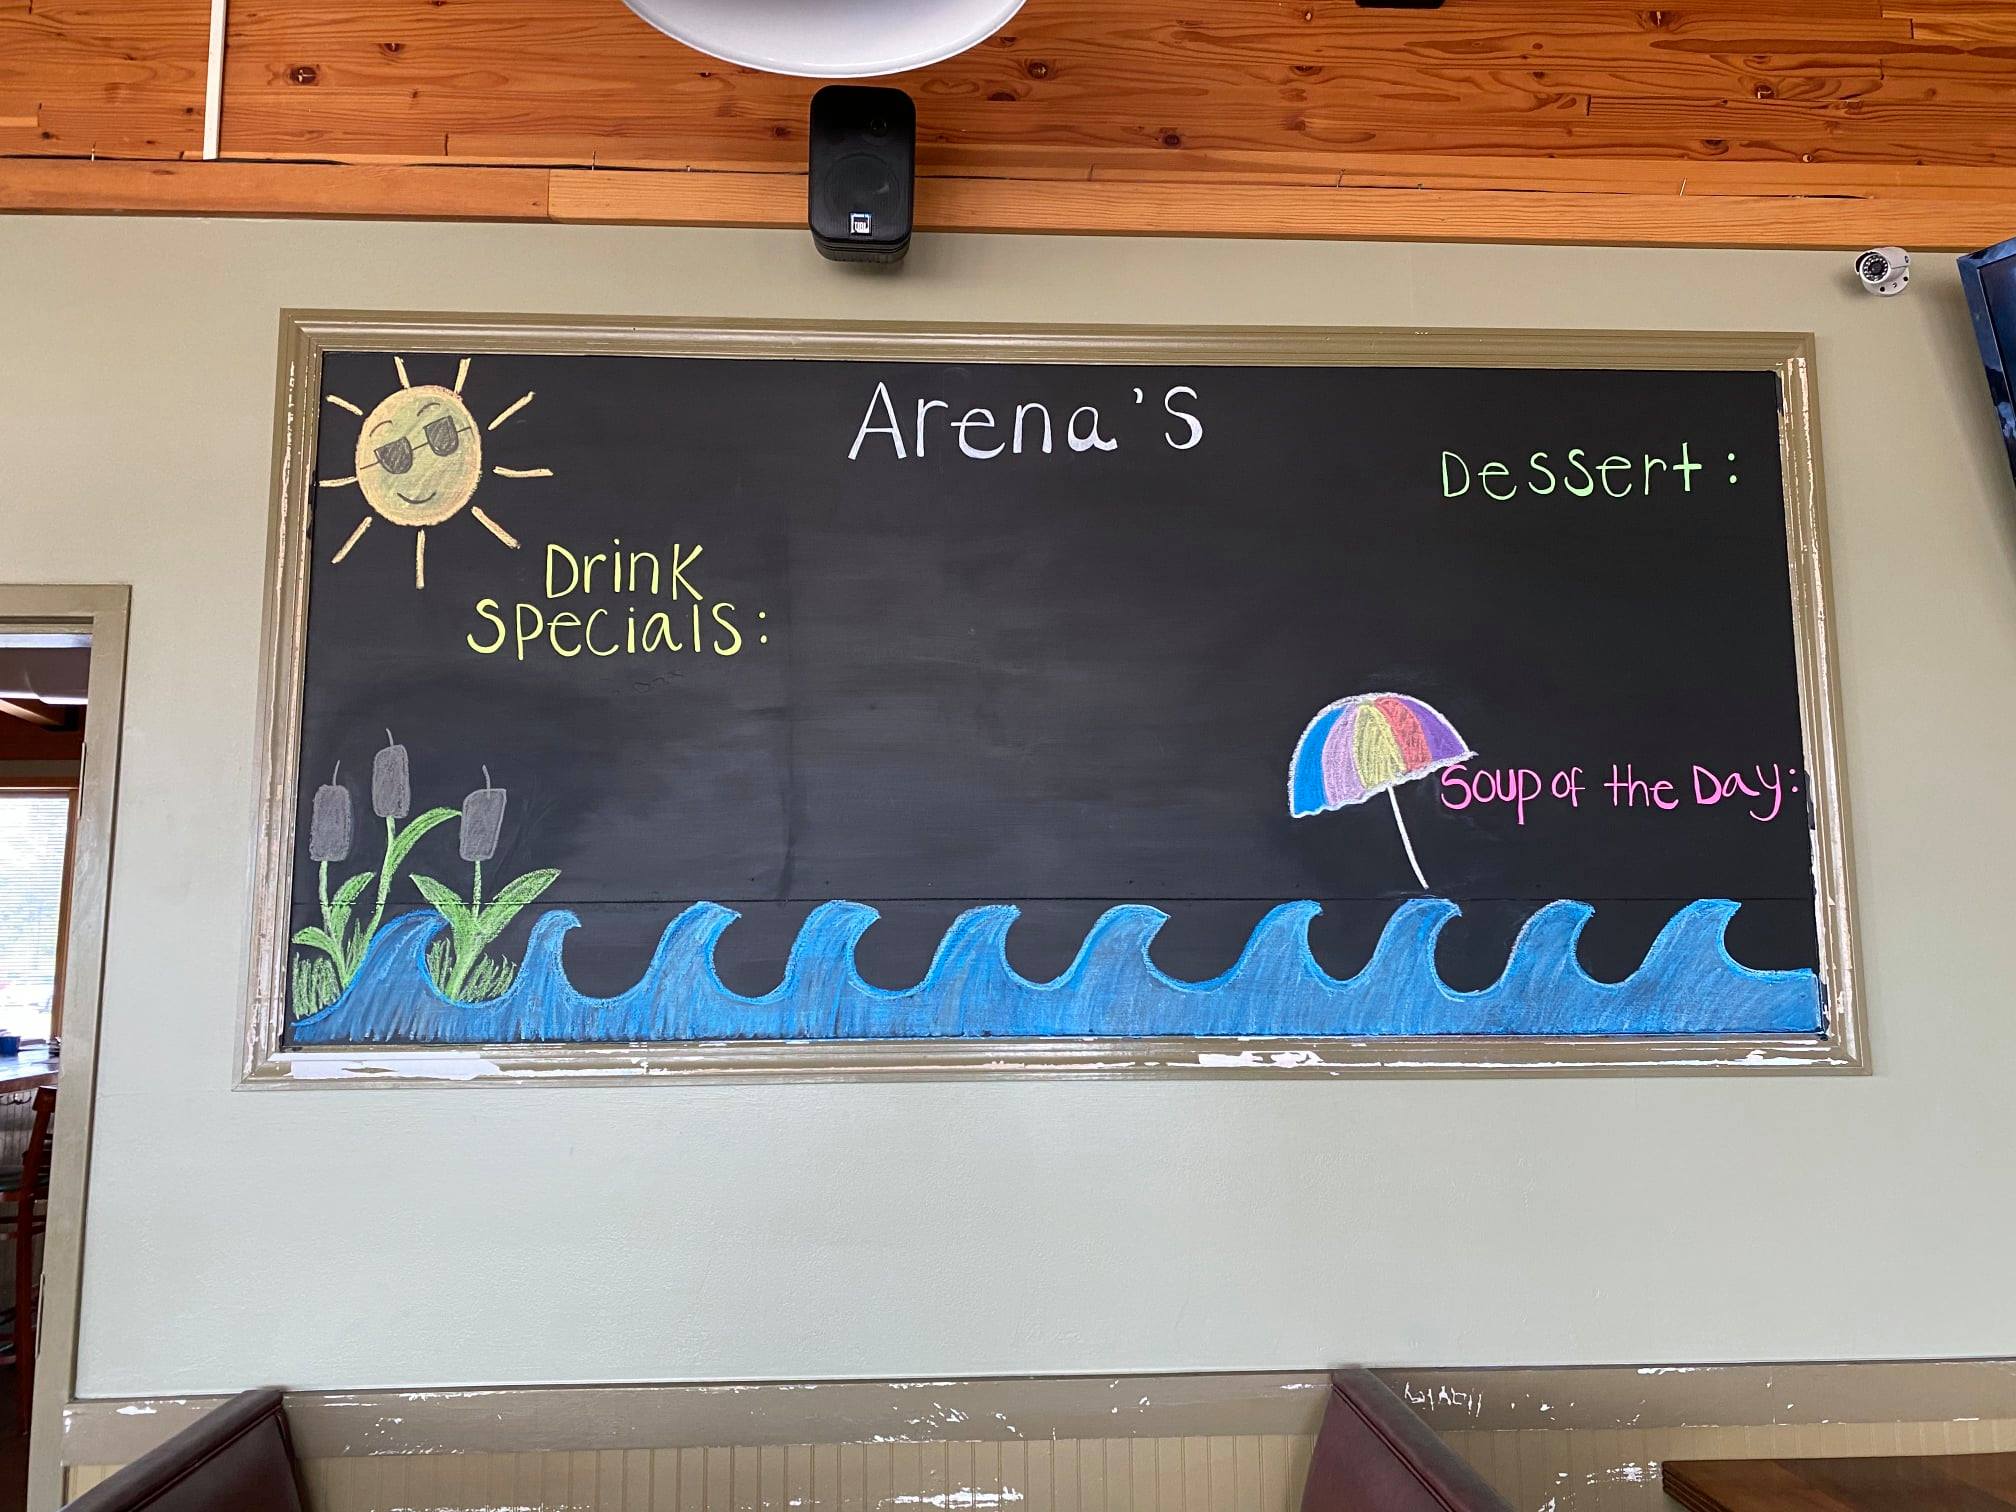 JBL
Arena's
Dessert:
Drink
Specials:
Soup of the Day: